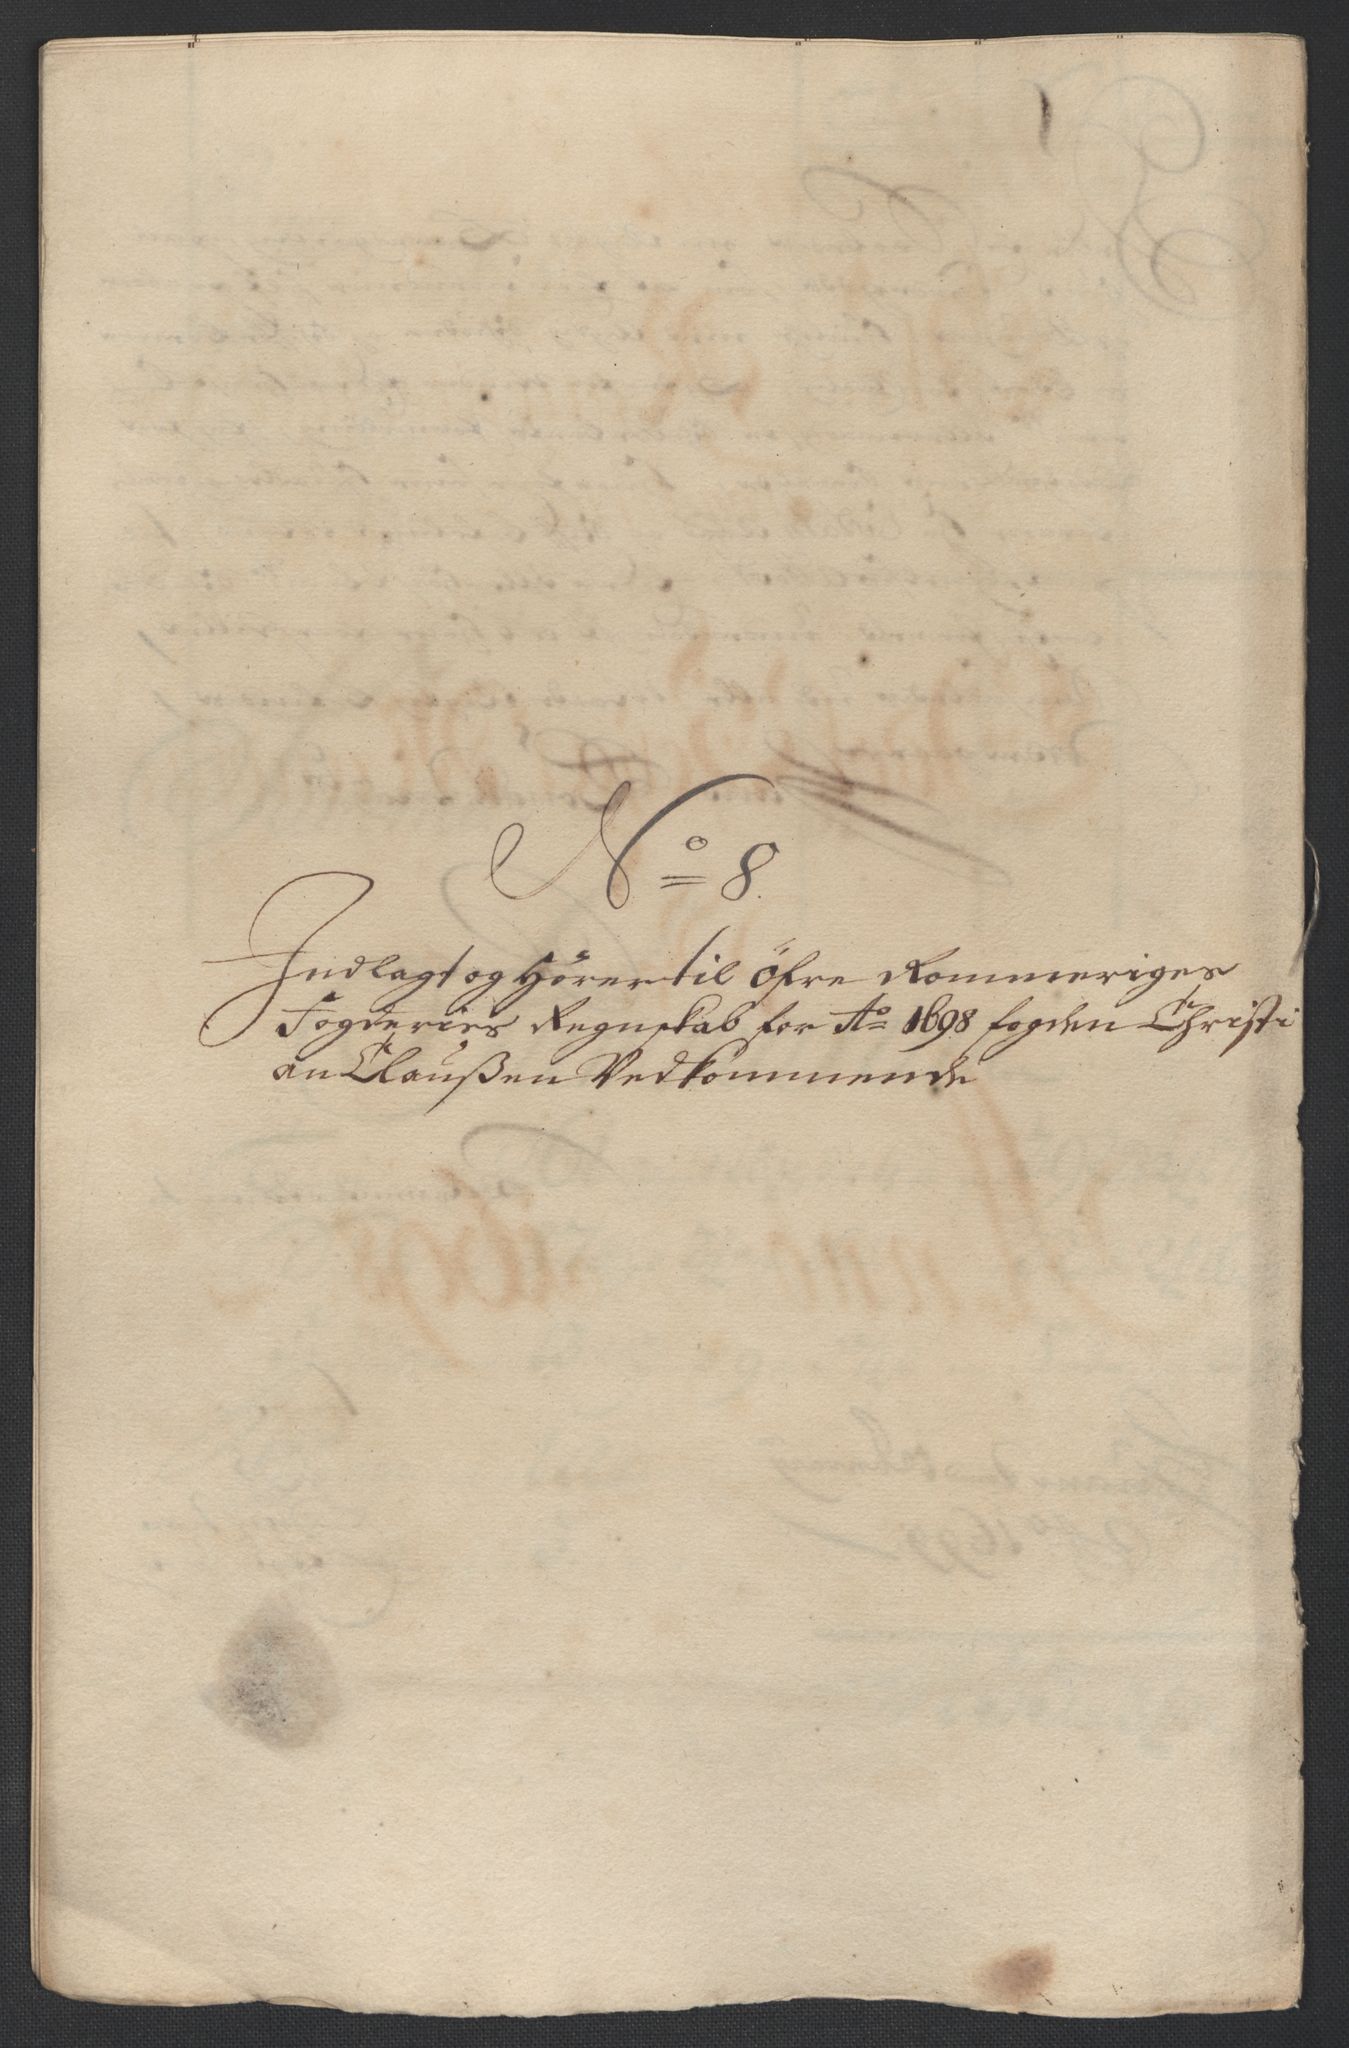 No 8.
Indlagt og Hörer til Öfre Rommeriges
Fogderies Regnskab for Ao 1698 fogden Christi
an Claußen Vedkommende